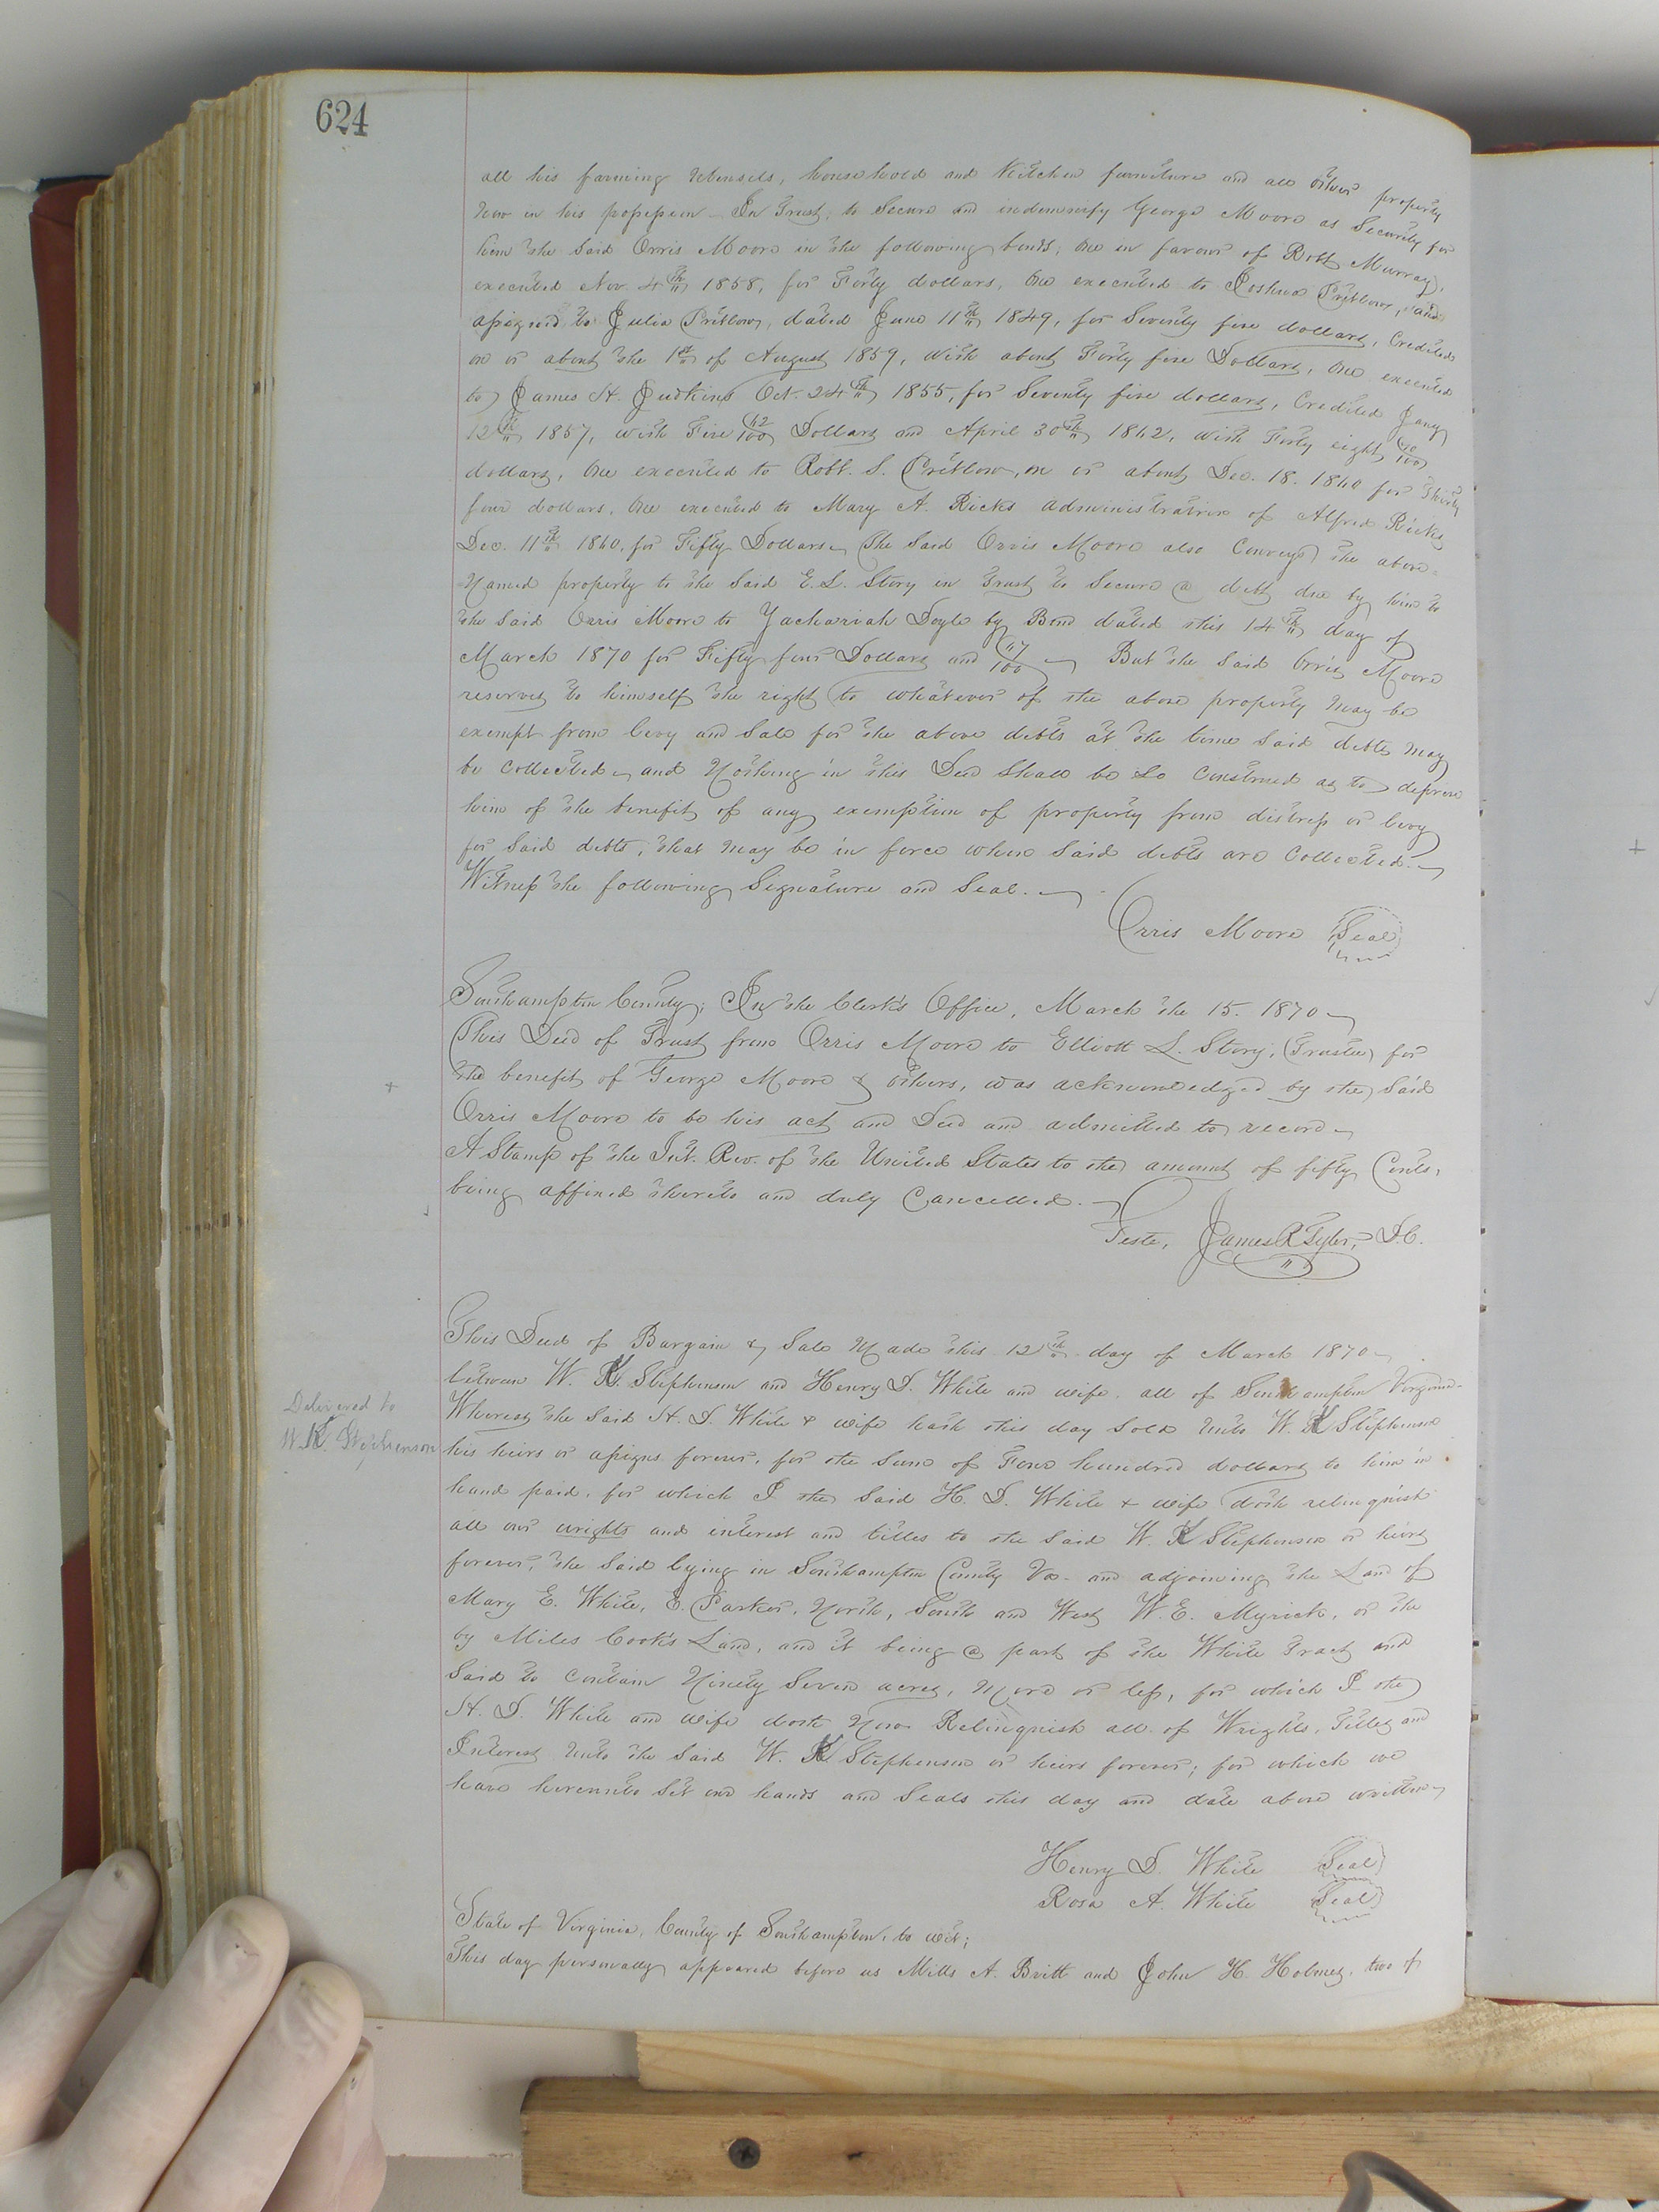 624
all his farming Utensils, household and Kitchen furniture and all other property
Now in his possession In Trust, to Secure and indemnify George Moore as Security for
him the Said Orris Moore in the following bonds; One in favour of Robt Murray,
executed Nov. 4th 1858, for Forty dollars, One executed to Joshua Pretlow, and
assigned to Julia Pretlow, dated June 11th 1849, for Seventy five dollars, Credited
on or about the 1st of August 1859, with about Forty five Dollars, One executed
to James H. Judkins Oct. 24th 1855, for Seventy five dollars, Credited Jany
12th 1857, with Five 42/100 Dollars and April 30th 1862, with Forty eight
dollars, One executed to Robt. S. Pretlow, on or about Dec. 18. 1860 for Thirty
four dollars, One executed to Mary A. Ricks administratrix of Alfred Ricks
Dec. 11th 1860, for Fifty Dollars The Said Orris Moore also Conveys the above
Named property to the Said E. L. Story in Trust to Secure a debt due by him to
the Said Orris Moore to Zachariah Doyle by Bond dated this 14th day of
March 1870 for Fifty four Dollars and 47/100 But the Said Orris Moore
reserves to himself the right to whatever of the above property May be
exempt from levy and Sale for the above debts at the time Said debts may
be Collected and Nothing in this Deed Shall be So Construed as to deprive
him of the benefit of any exemption of property from distress or levy
for Said debts, that May be in force when Said debts are Collected.
Witness the following Signature and Seal.
Orris Moore Seal
Southampton County; In the Clerk's Office, March the 15. 1870
This Deed of Trust from Orris Moore to Elliott L. Story, (Trustee) for
the benefit of George Moore & others, was acknowledged by the Said
Orris Moore to be his act and Deed and admitted to record
A Stamp of the Int. Rev. of the United States to the amount of fifty Cents,
being affixed thereto and duly Cancelled.
Teste, James R Tyler, D.C.
This Deed of Bargain & Sale Made this 12th day of March 1870
between W. K. Stephenson and Henry D. White and wife, all of Southampton Virginia
Delivered to
W. K. Stephenson
Whereas the Said H. D. White & wife hath this day Sold Unto W. K Stephenson
his heirs or assigns forever, for the Sum of Four hundred dollars to him in
hand paid, for which I the Said H. D. White & wife doth relinquish
all our wrights and interest and titles to the Said W. K Stephenson or heirs
forever, the Said lying in Southampton County Va. and adjoining the Land of
Mary E. White, E. Parker, North, South and West W. E. Myrick, or the
by Miles Cook's Land, and it being a part of the White Tract and
Said to Contain Ninety Seven acres, More or less, for which I the
H. D. White and wife doth Now Relinquish all of Wrights, Titles and
Interest Unto the Said W. K. Stephenson or heirs forever; for which we
have hereunto Set our hands and Seals this day and date above written
Henry D. White Seal
Rosa A. White Seal
State of Virginia, County of Southampton, to wit;
This day personally appeared before us Mills A. Britt and John H. Holmes, two of